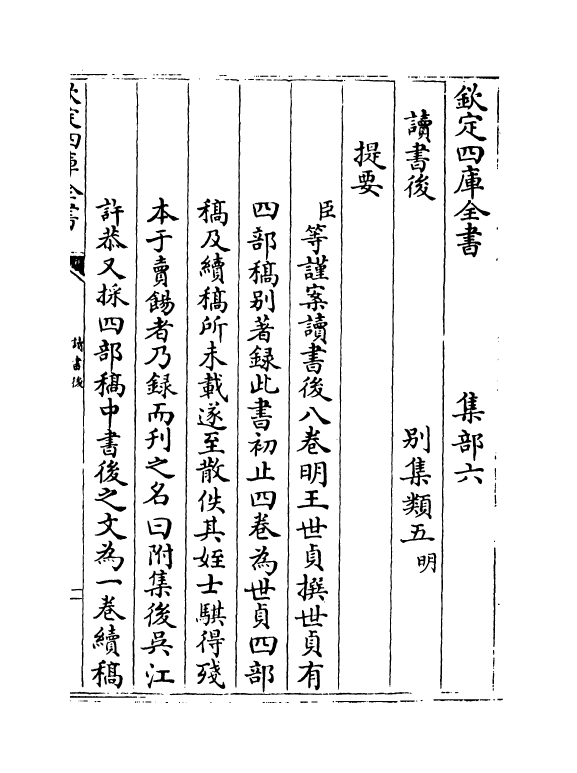 欽定四庫全書　集部六
讀書後　別集類五明
提要
臣等謹案讀書後八卷明王世貞撰世貞有
四部稿別著録此書初止四卷為世貞四部
稿及續稿所未載遂至散佚其姪士騏得殘
本于賣餳者乃録而刊之名曰附集後吳江
許恭又採四部稿中書後之文為一卷續稿
欽定四庫全書
讀書後